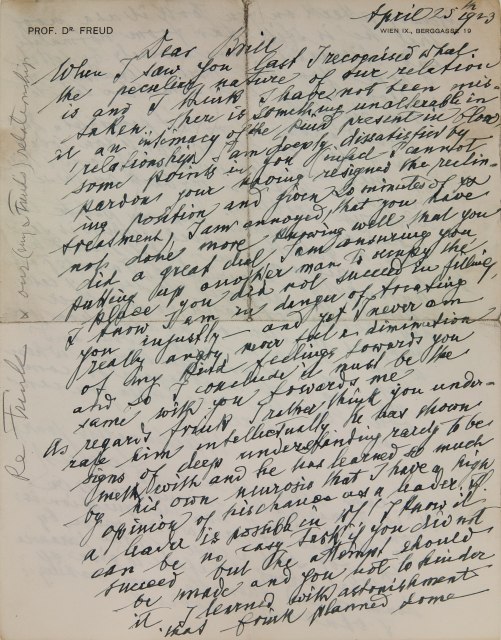 April 25th 1923
PROF. Dr. FREUD
WIEN IX., BERGGASSE 19
Dear Brill
When I saw you last I recognised what
the peculiar nature of our relation
is and I think I have not been mis-
taken. There is something unalterable in
it an intimacy of the kind present in blood
relationships. I am deeply dissatisfied by
some points in you indeed I cannot
pardon your having resigned the reclin-
ing position and given 20 minutes of
treatment, I am annoyed, that you have
not done more knowing well that you
did a great deal, I am ensuring you
putting up another man to occupy the
place you did not succeed in filling
I know I am in danger of treating
you unjustly – and yet I never am
really angry never feel a diminution
of my kind feelings towards you
and so I conclude it must be the
same with you towards me
As regards Frink I rather think you under-
rate him intellectually. He has shown
signs of deep understanding rarely to be
met with and he has learned so much
by his own neurosis that I have a high
opinion of his chances as a leader, if
a leader is possible in N.Y. I know it
can be no easy task, if you did not
succeed but the attempt should
be made and you not to hinder
it. I learned with astonishment
that Frink planned some
Re Frink & our (my & Freud) relationship